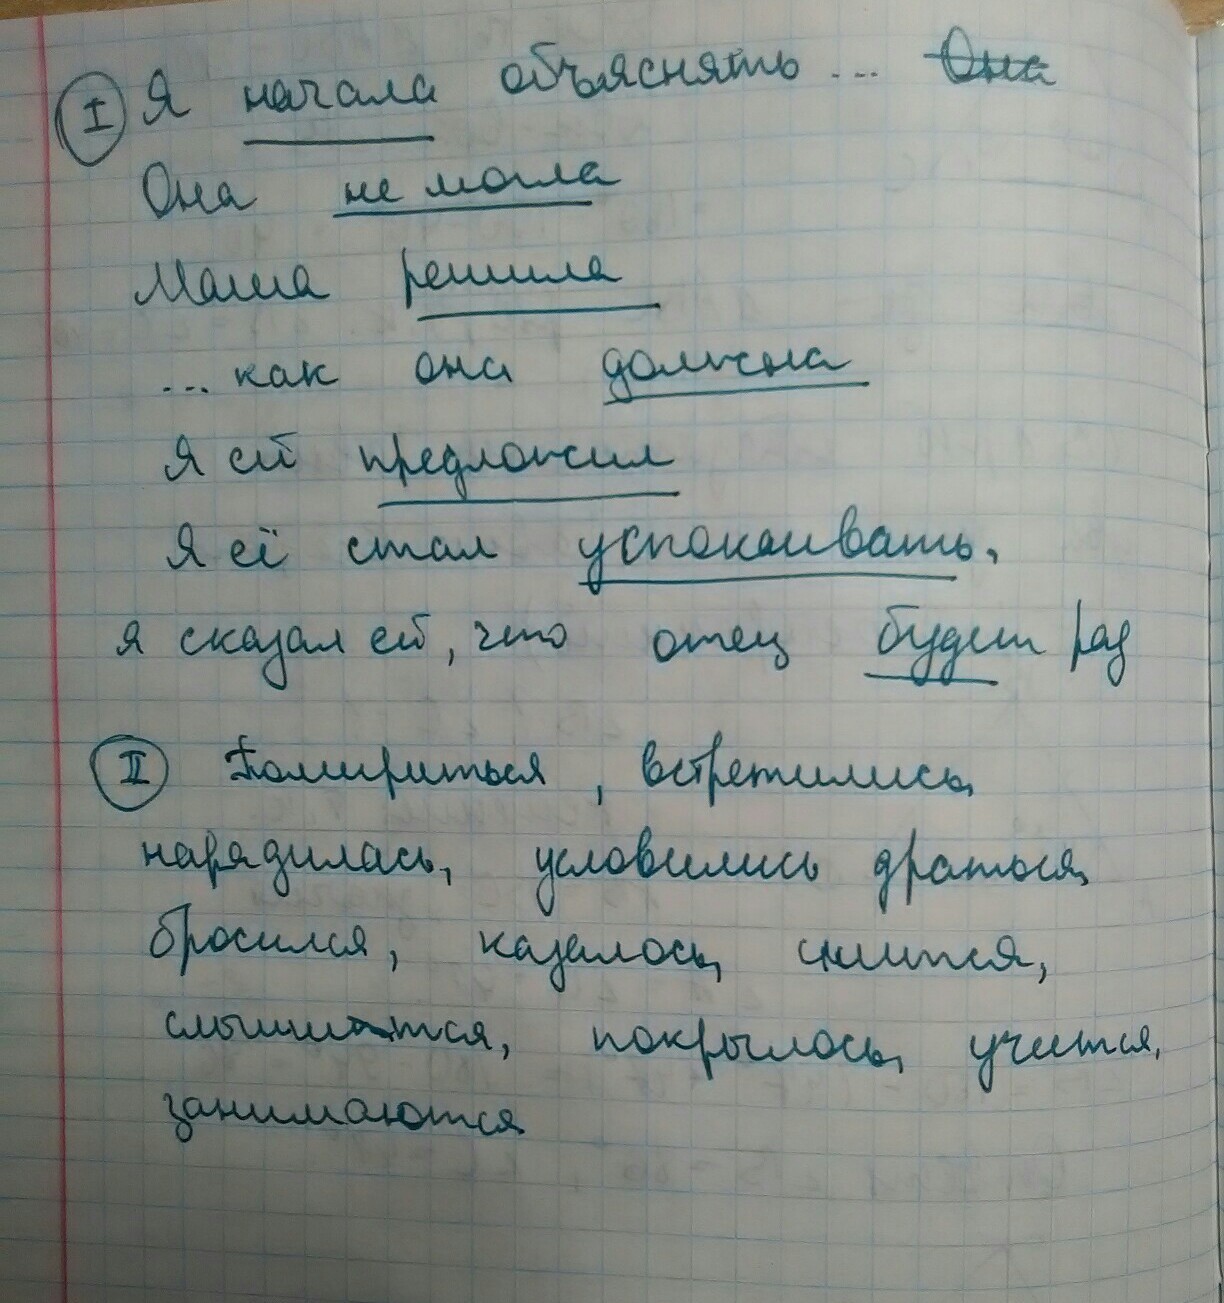 I Я начала объяснять ... Она
Она не могла
Маша решила
... как она должна
Я ей предложил
Я её стал успокаивать.
Я сказал ей, что отец будет рад
II Помириться, встретились,
нарядилась, условились драться,
бросился, казалось, снится,
слышится, покрылось, учится,
занимаются